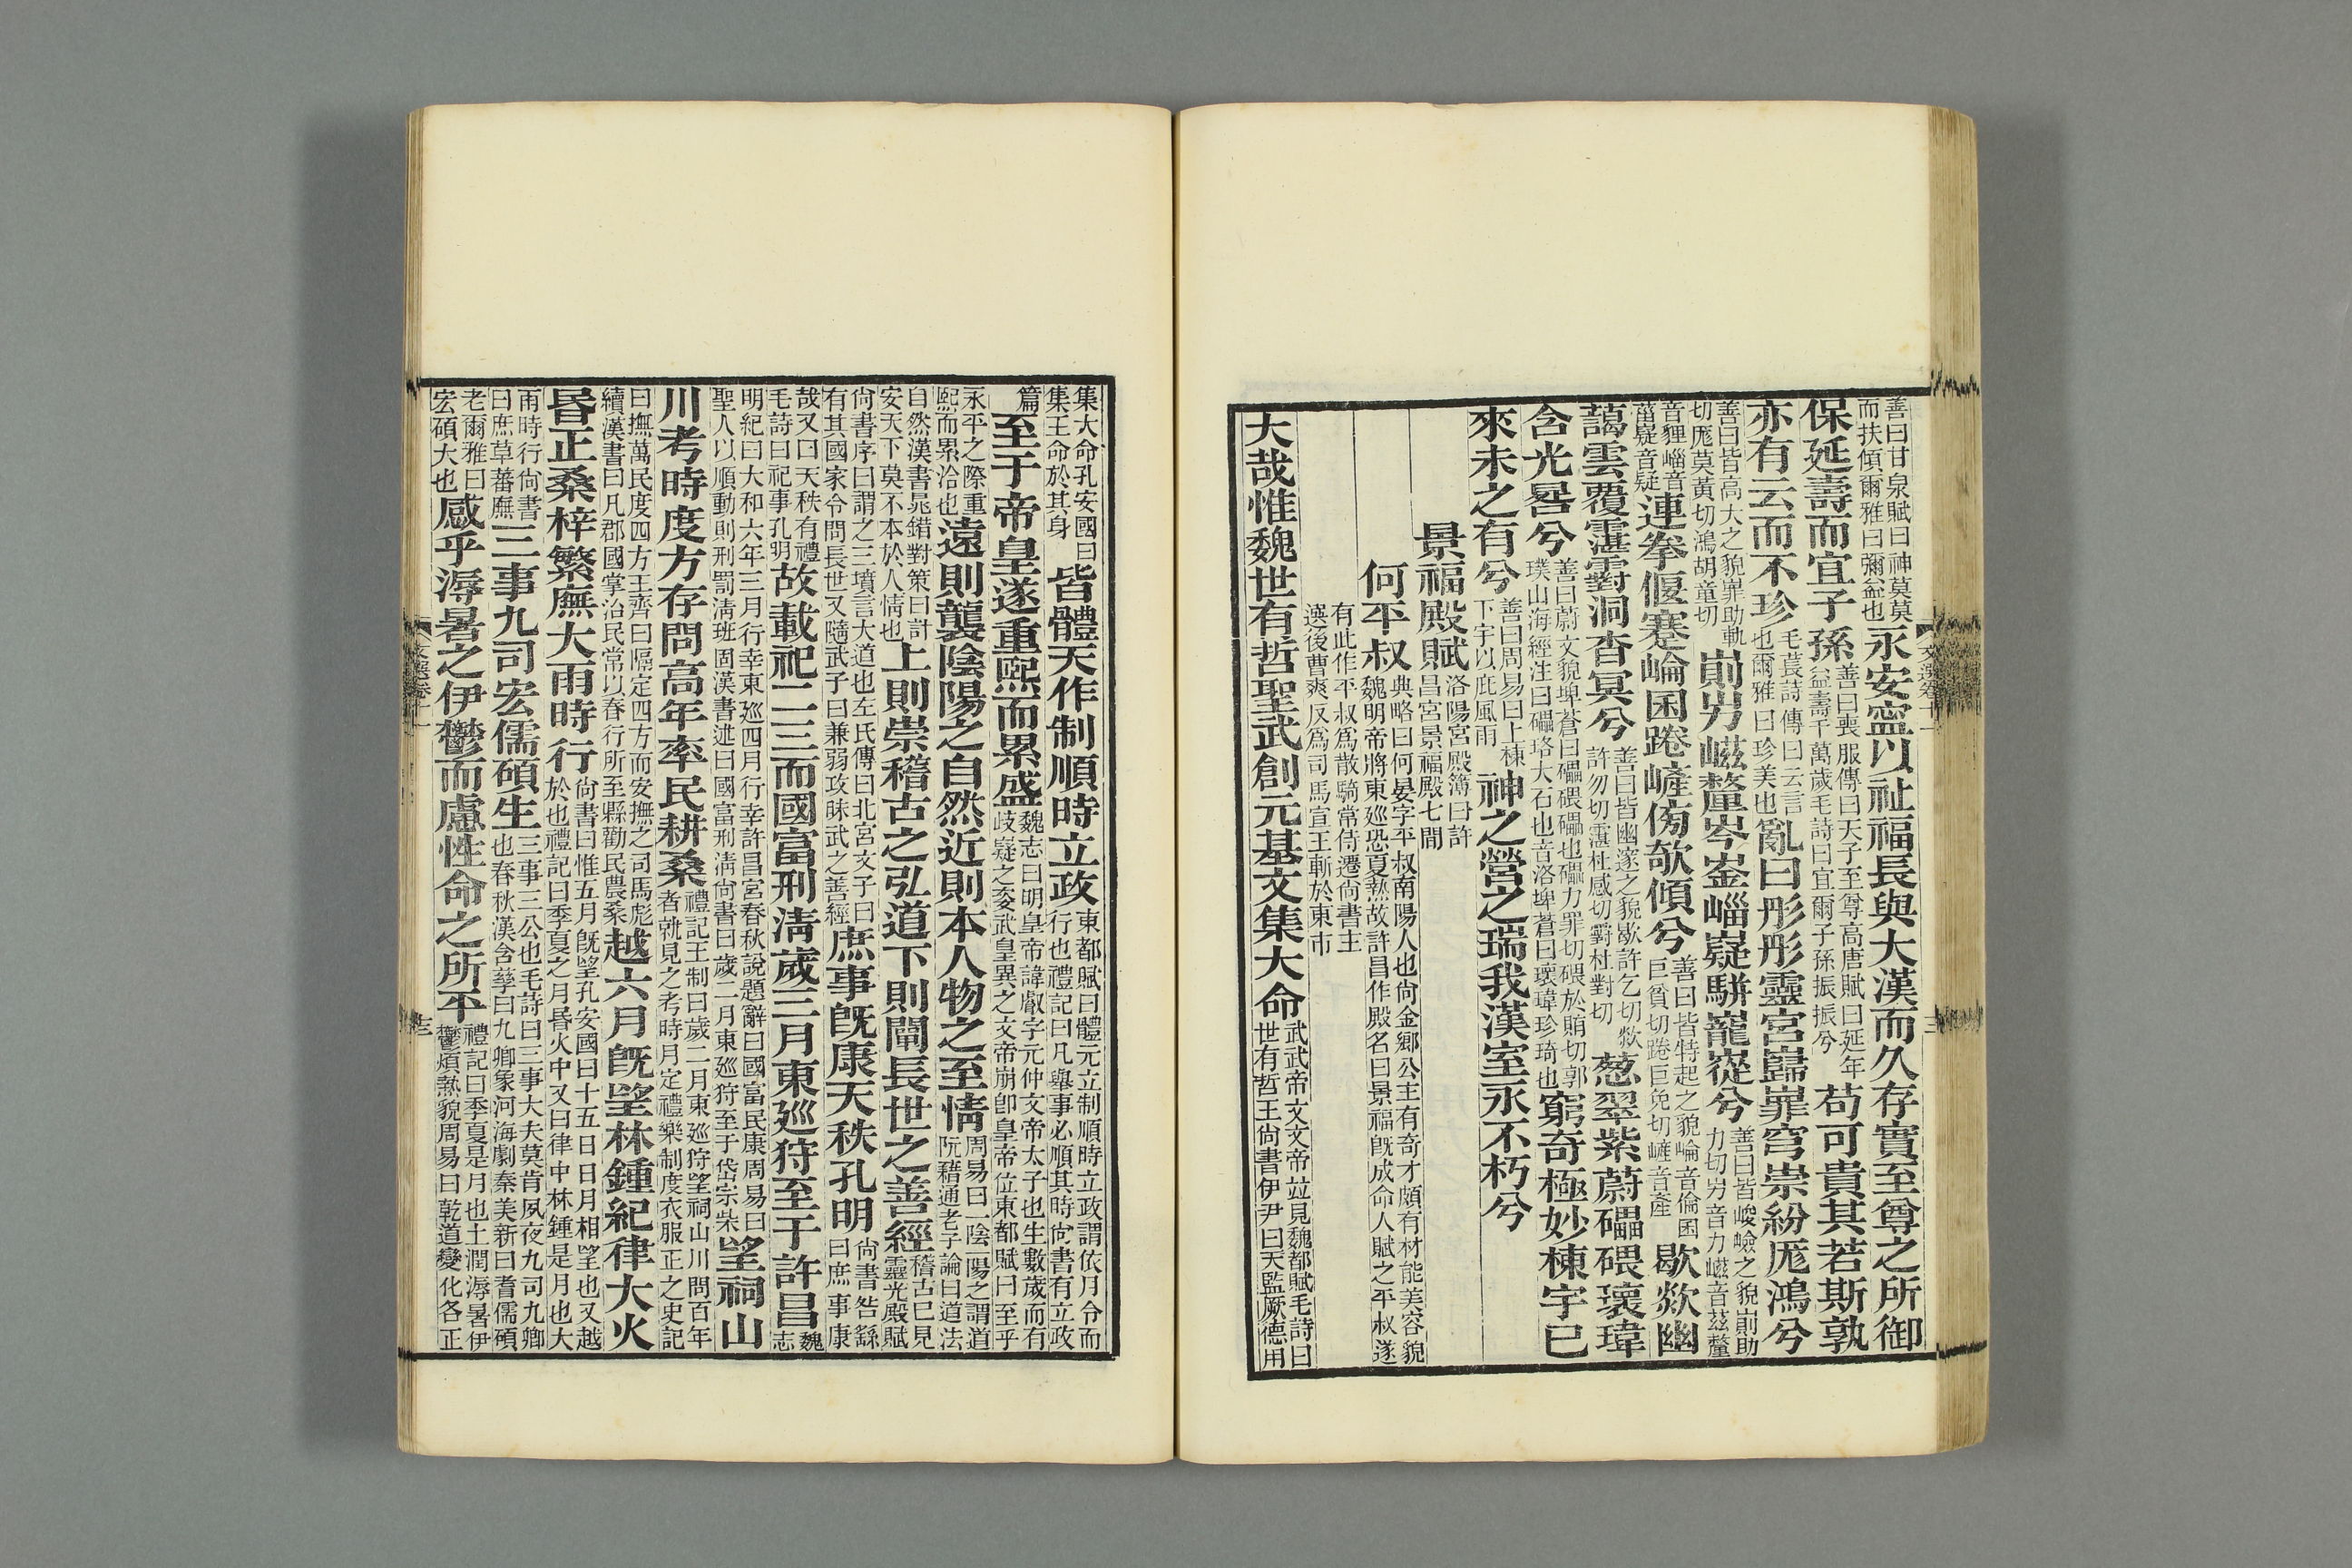 善曰甘泉賦曰神莫莫而扶傾爾雅曰彌益也永安寧以祉福長與大漢而久存實至尊之所御
保延壽而宜子孫善曰喪服傳曰天子至尊高唐賦曰延年益壽千萬歲毛詩曰宜爾子孫振振兮苟可貴其若斯孰
亦有云而不珍毛萇詩傳曰云言也爾雅曰珍美也亂曰彤彤靈宮巋嶵穹崇紛厖鴻兮
善曰皆高大之貌嶵助軌切厖莫黃切鴻胡童切崱屴嵫釐岑崟崰嶷駢巃嵸兮善曰皆峻嶮之貌崱助力切屴音力嵫音茲釐
音貍崰音菑嶷音疑連拳偃蹇崘囷踡嵼傍欹傾兮善曰皆特起之貌崘音倫囷巨貧切踡巨免切嵼音產歇欻幽
藹雲覆霮䨴洞杳冥兮善曰皆幽邃之貌歇許乞切欻許勿切霮杜感切䨴杜對切葱翠紫蔚礧碨瓌瑋
含光晷兮善曰蔚文貌埤蒼曰礧碨礧也礧力罪切碨於賄切郭璞山海經注曰礧硌大石也音洛埤蒼曰瓌瑋珍琦也窮奇極妙棟宇已
來未之有兮善曰周易曰上棟下宇以庇風雨神之營之瑞我漢室永不朽兮
景福殿賦洛陽宮殿簿曰許昌宮景福殿七間
何平叔典略曰何晏字平叔南陽人也尚金鄉公主有奇才頗有材能美容貌魏明帝將東巡恐夏熱故許昌作殿名曰景福旣成命人賦之平叔遂
有此作平叔爲散騎常侍遷尚書主選後曹爽反爲司馬宣王斬於東市
大哉惟魏世有哲聖武創元基文集大命武武帝文文帝竝見魏都賦毛詩曰世有哲王尚書伊尹曰天監厥德用
集大命孔安國曰集王命於其身皆體天作制順時立政東都賦曰體元立制順時立政謂依月令而行也禮記曰凡舉事必順其時尚書有立政
篇至于帝皇遂重熙而累盛魏志曰明皇帝諱叡字元仲文帝太子也生數歲而有岐嶷之姿武皇異之文帝崩卽皇帝位東都賦曰至乎
永平之際重熙而累洽也遠則襲陰陽之自然近則本人物之至情周易曰一陰一陽之謂道阮籍通老子論曰道法
自然漢書晁錯對策曰計安天下莫不本於人情也上則崇稽古之弘道下則闡長世之善經稽古已見靈光殿賦
尚書序曰謂之三墳言大道也左氏傳曰北宮文子曰有其國家令問長世又隨武子曰兼弱攻昧武之善經庶事旣康天秩孔明尚書咎繇曰庶事康
哉又曰天秩有禮毛詩曰祀事孔明故載祀二三而國富刑淸歲三月東巡狩至于許昌魏志
明紀曰大和六年三月行幸東巡四月行幸許昌宮春秋說題辭曰國富民康周易曰聖人以順動則刑罰淸班固漢書述曰國富刑淸尚書曰歲二月東巡狩至于岱宗柴望祠山
川考時度方存問高年率民耕桑禮記王制曰歲二月東巡狩望祠山川問百年者就見之考時月定禮樂制度衣服正之史記
曰撫萬民度四方王齊曰隔定四方而安撫之司馬彪續漢書曰凡郡國掌治民常以春行所至縣勸民農桑越六月旣望林鍾紀律大火
昬正桑梓繁廡大雨時行尚書曰惟五月旣望孔安國曰十五日日月相望也又越於也禮記曰季夏之月昬火中又曰律中林鍾是月也大
雨時行尚書曰庶草蕃廡三事九司宏儒碩生三事三公也毛詩曰三事大夫莫肯夙夜九司九卿也春秋漢含孳曰九卿象河海劇秦美新曰耆儒碩
老爾雅曰宏碩大也感乎溽暑之伊鬱而慮性命之所平禮記曰季夏是月也土潤溽暑伊鬱煩熱貌周易曰乾道變化各正
文選卷十一